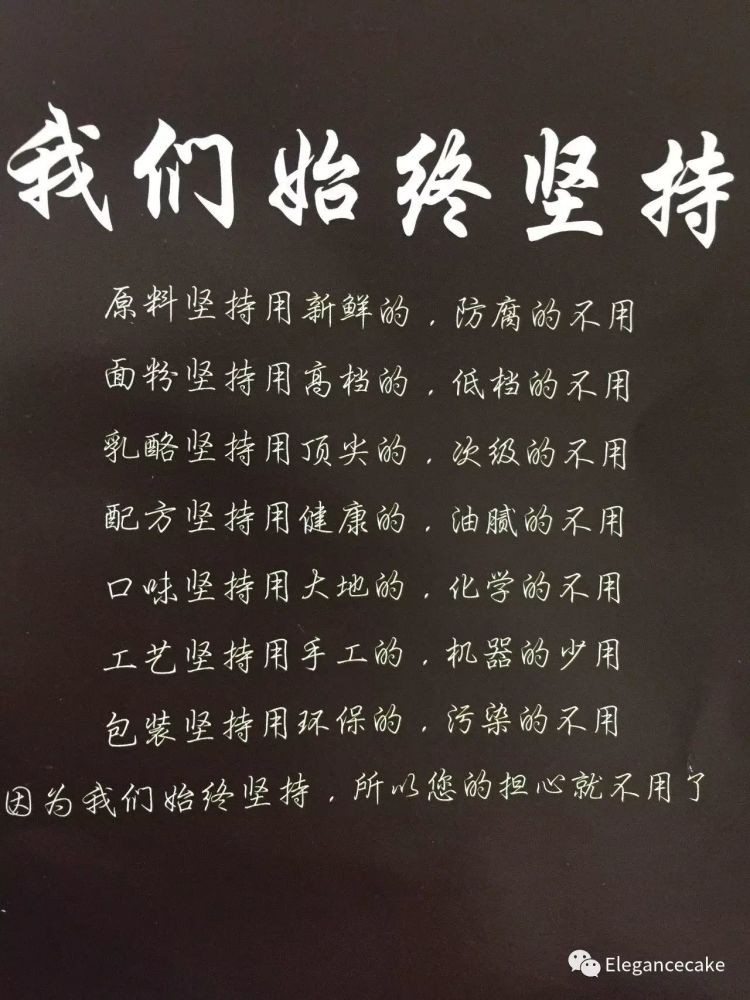 我们始终坚持
原料坚持用新鲜的，防腐的不用
面粉坚持用高档的，低档的不用
乳酪坚持用顶尖的，次级的不用
配方坚持用健康的，油腻的不用
口味坚持用大地的，化学的不用
工艺坚持用手工的，机器的少用
包装坚持用环保的，污染的不用
因为我们始终坚持，所以您的担心就不用了
Elegancecake